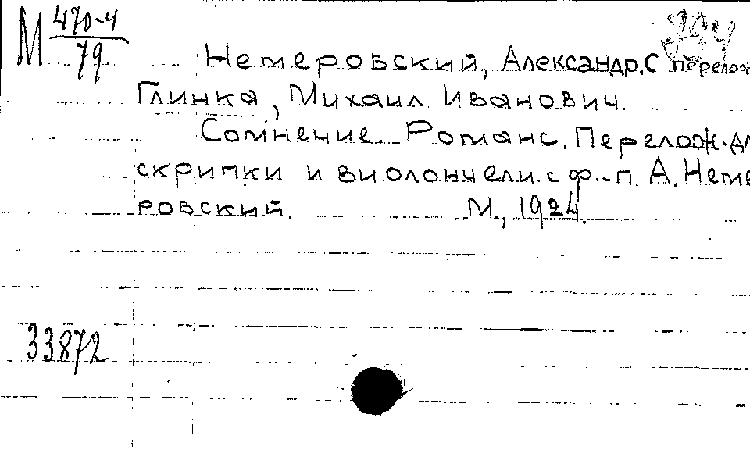 М 470-4
79
Немеровский, Александр, С перелож
Глинка, Михаил Иванович.
Сомнение. Романс. Перелож. дл
скрипки и виолончели с ф.-п. А. Неме
ровский. М., 1924.
33872